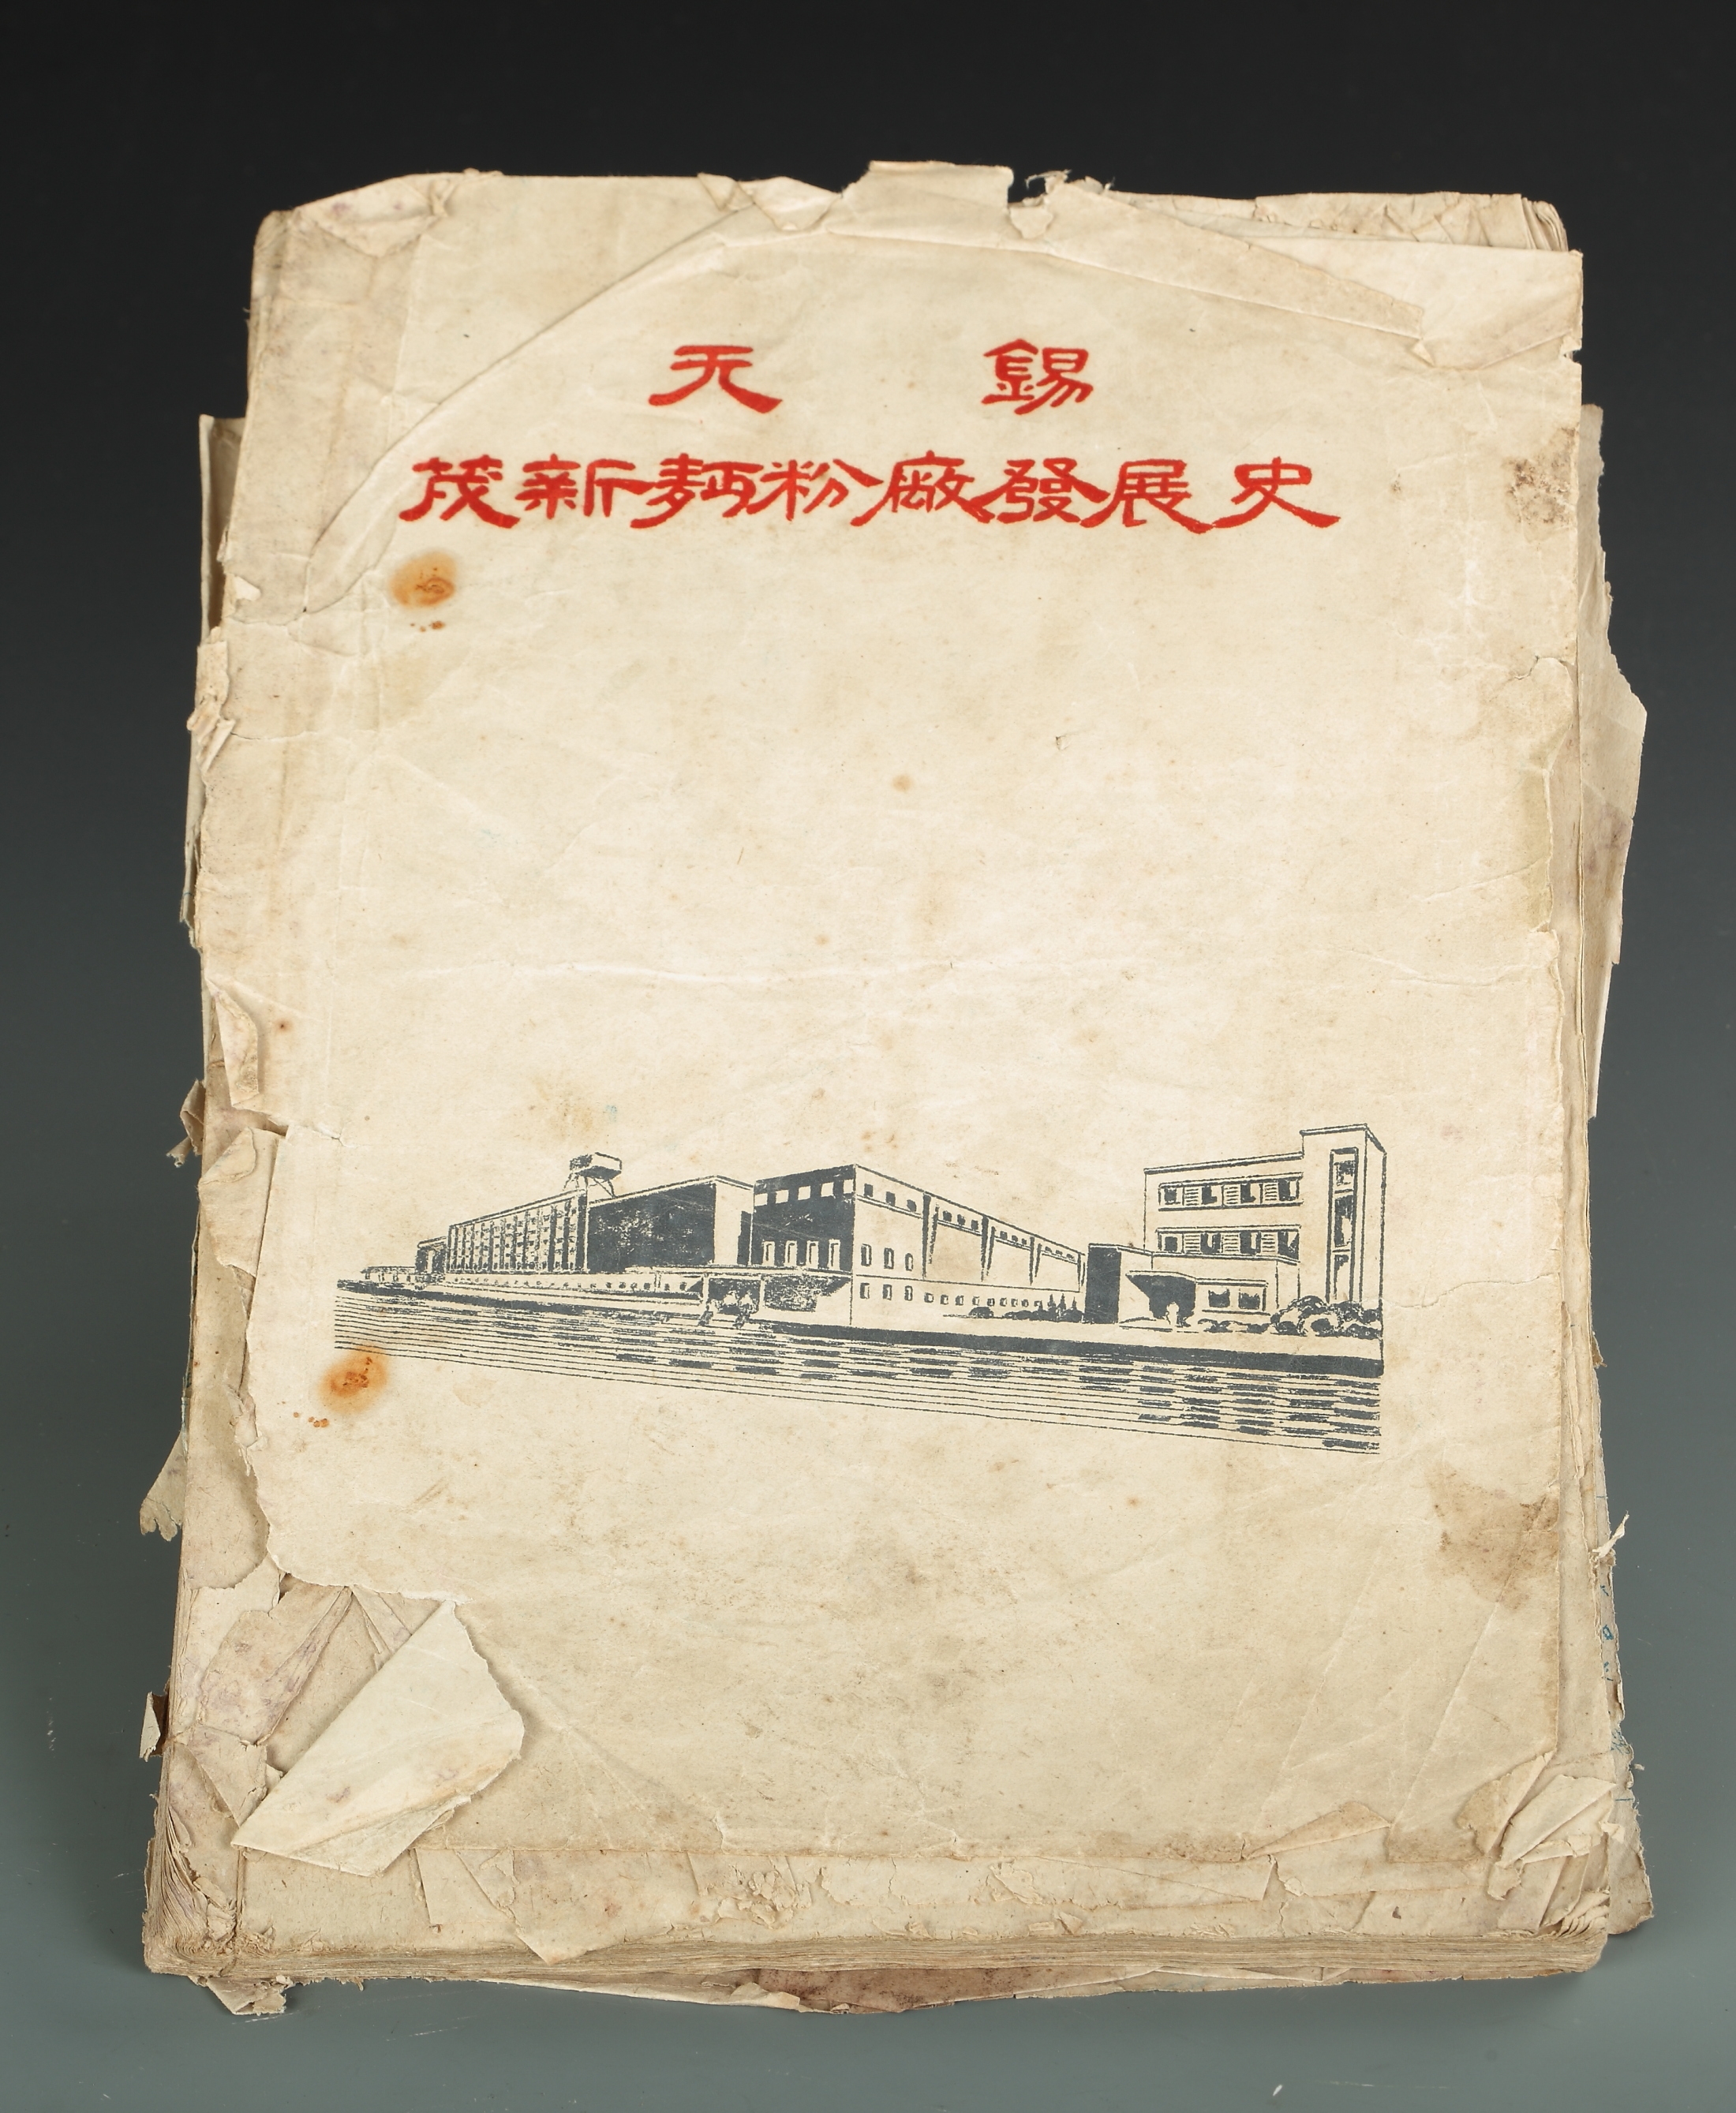 无錫
茂新麪粉廠發展史